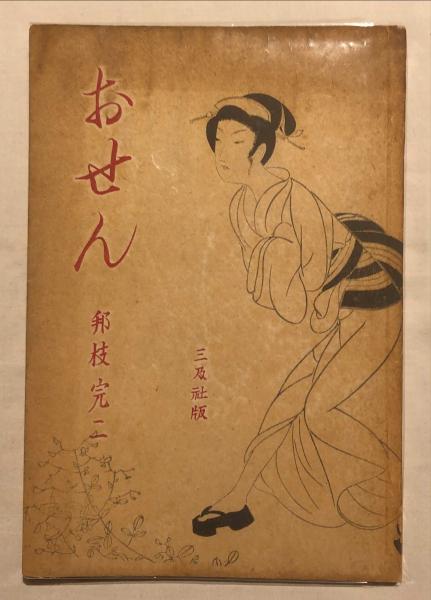 おせん
邦枝完二
三及社版